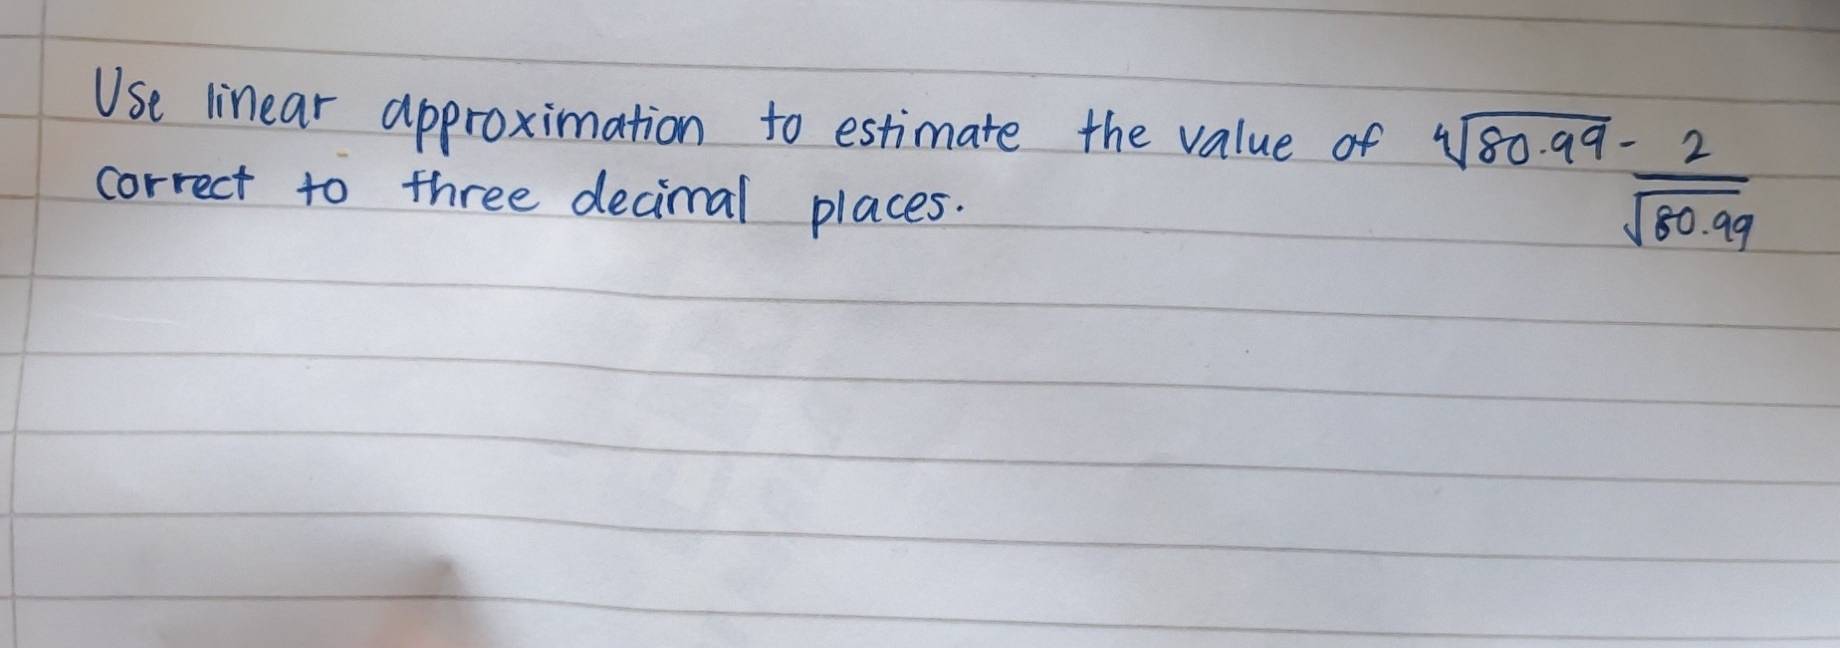 Use linear approximation to estimate the value of ∜80.99 - 2/√80.99
correct to three decimal places.